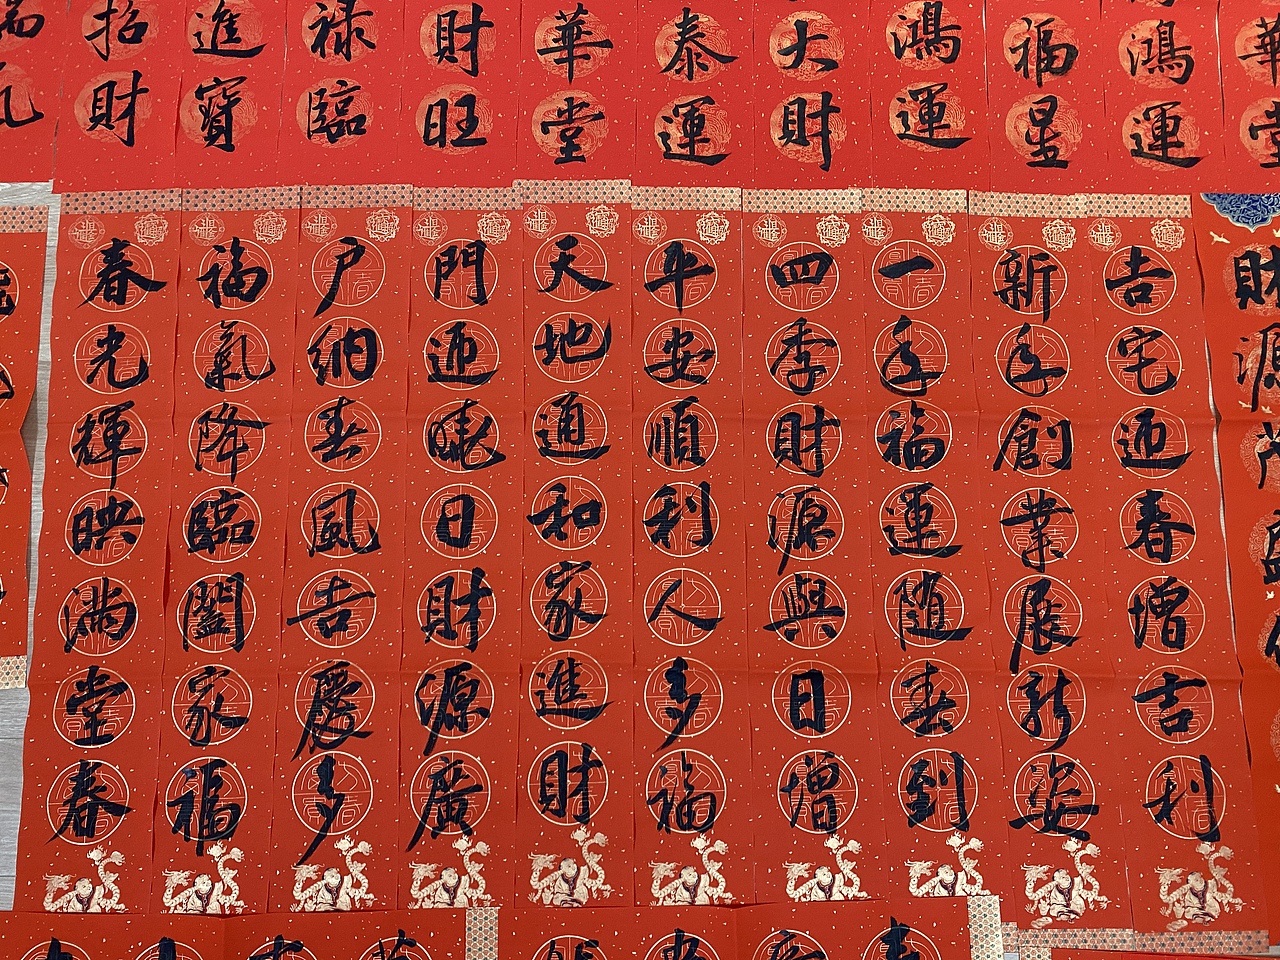 華堂
鴻運
福星
鴻運
大財
泰運
華堂
財旺
禄臨
進寶
招財
財源茂盛
吉宅迎春增吉利
新年創業展新姿
一年福運随春到
四季財源與日增
平安順利人多福
天地通和家進財
門迎曉日財源廣
戶納春風吉慶多
福氣降臨闔家福
春光輝映滿堂春